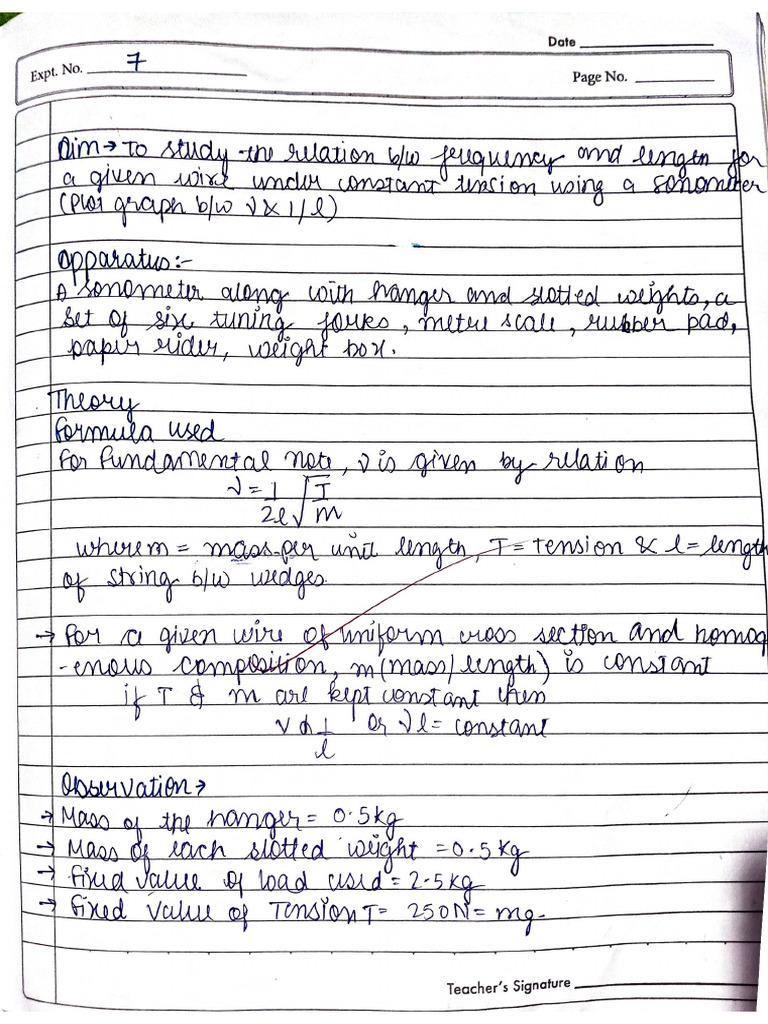 Date
Expt. No. 7
Page No.
Aim → To study the relation b/w frequency and length for
a given wire under constant tension using a sonometer
(Plot graph b/w ν & 1/l)
Apparatus:-
A sonometer along with hanger and slotted weights, a
set of six tuning forks, metre scale, rubber pad,
paper rider, weight box.
Theory
Formula used
For fundamental note, ν is given by relation
ν = 1/2l √T/m
where m = mass per unit length, T = tension & l = length
of string b/w wedges.
→ For a given wire of uniform cross section and homog
-enous composition, m (mass/length) is constant
if T & m are kept constant then
ν ∝ 1/l or νl = constant
Observation →
→ Mass of the hanger = 0.5kg
→ Mass of each slotted weight = 0.5kg
→ Fixed value of load used = 2.5kg
→ Fixed value of Tension T = 250N = mg.
Teacher's Signature